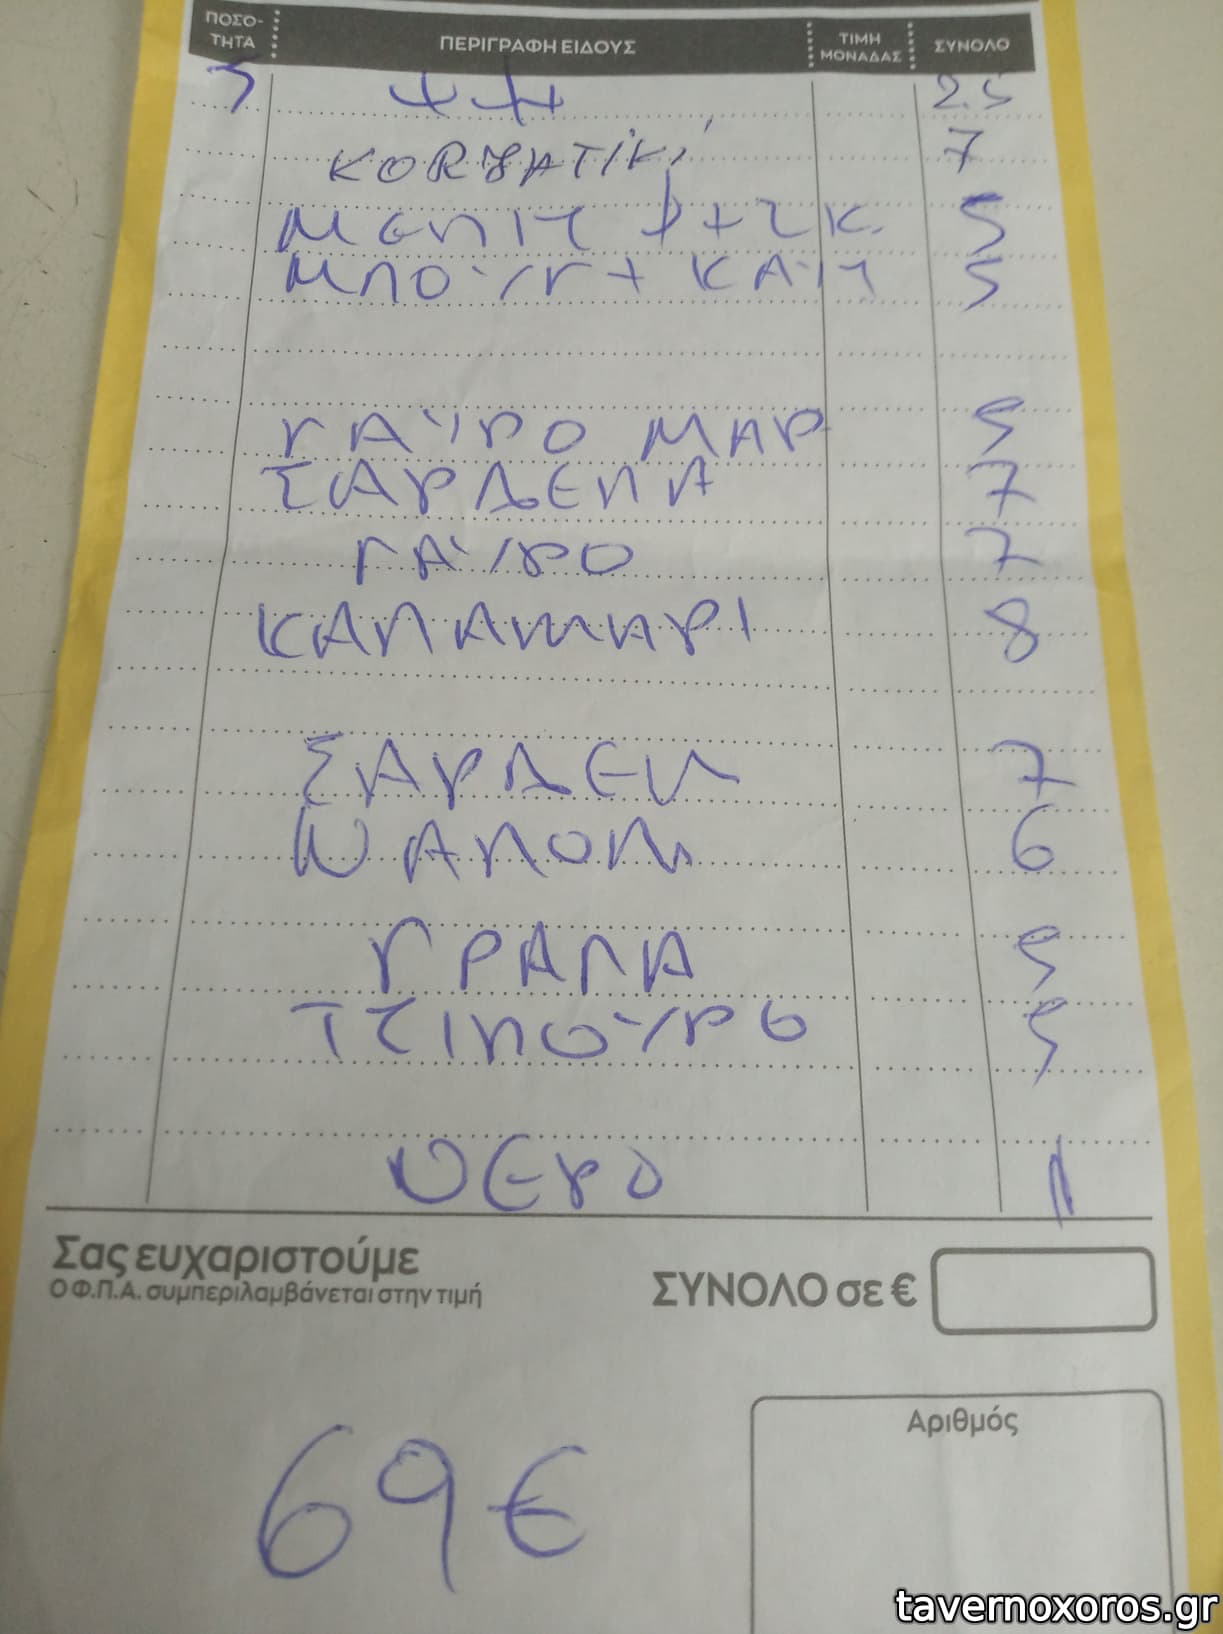 ΠΟΣΟ-
ΤΗΤΑ ΠΕΡΙΓΡΑΦΗ ΕΙΔΟΥΣ ΤΙΜΗ
ΜΟΝΑΔΑΣ ΣΥΝΟΛΟ
5 ΨΗ 2.5
7
ΜΕΛΙΤΖ Φ+ΣΚ. 5
ΜΠΟΥΓ+ΚΑΥΤ 5
ΓΑΥΡΟ ΜΑΡ 5
ΣΑΡΔΕΛΑ 7
ΓΑΥΡΟ 7
ΚΑΛΑΜΑΡΙ 8
ΣΑΡΔΕΛ 7
6
ΓΡΑΠΑ 5
ΤΣΙΠΟΥΡΟ 5
ΝΕΡΟ 1
Σας ευχαριστούμε
Ο Φ.Π.Α. συμπεριλαμβάνεται στην τιμή
ΣΥΝΟΛΟ σε €
Αριθμός
69€
tavernoxoros.gr